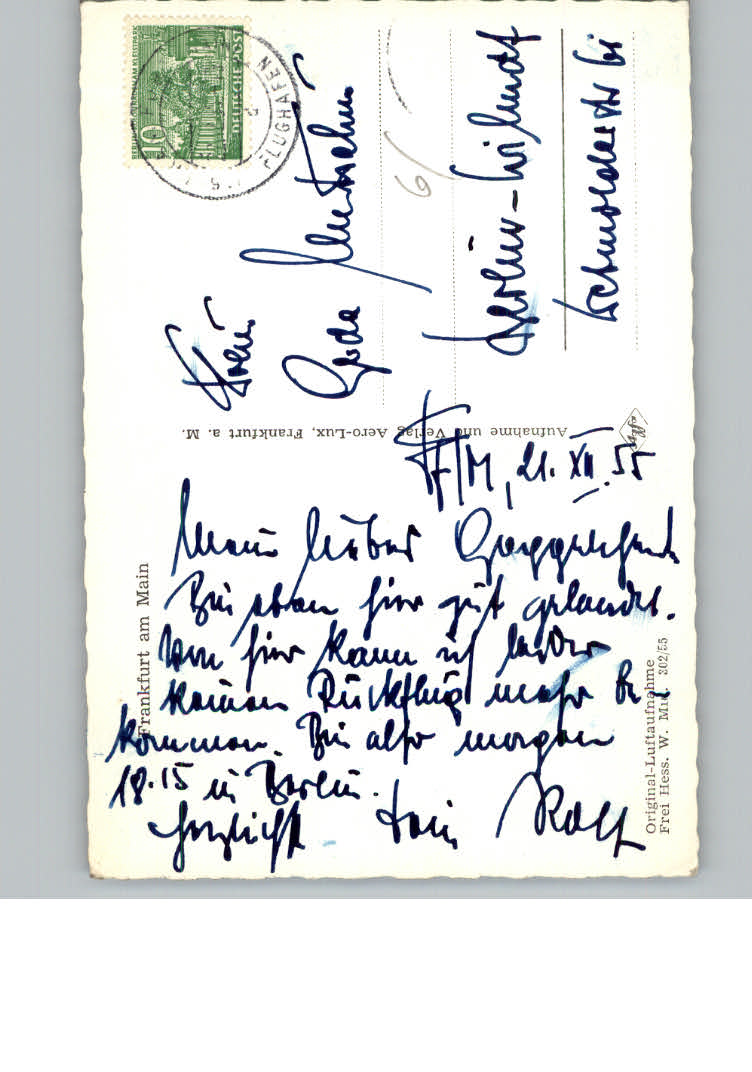 10
DEUTSCHE POST
FLUGHAFEN
Frau
Berlin-Wilmdf
Aufnahme und Verlag Aero-Lux, Frankfurt a. M.
Ff/M, 21. XII. 55
Mein lieber
Bin eben hier gut gelandet.
Von hier kann ich leider
keinen Rückflug mehr be-
kommen. Bin also morgen
18.15 in Berlin.
Herzlichst Dein Rolf
Frankfurt am Main
Original-Luftaufnahme
Frei Hess. W. Min 302/55